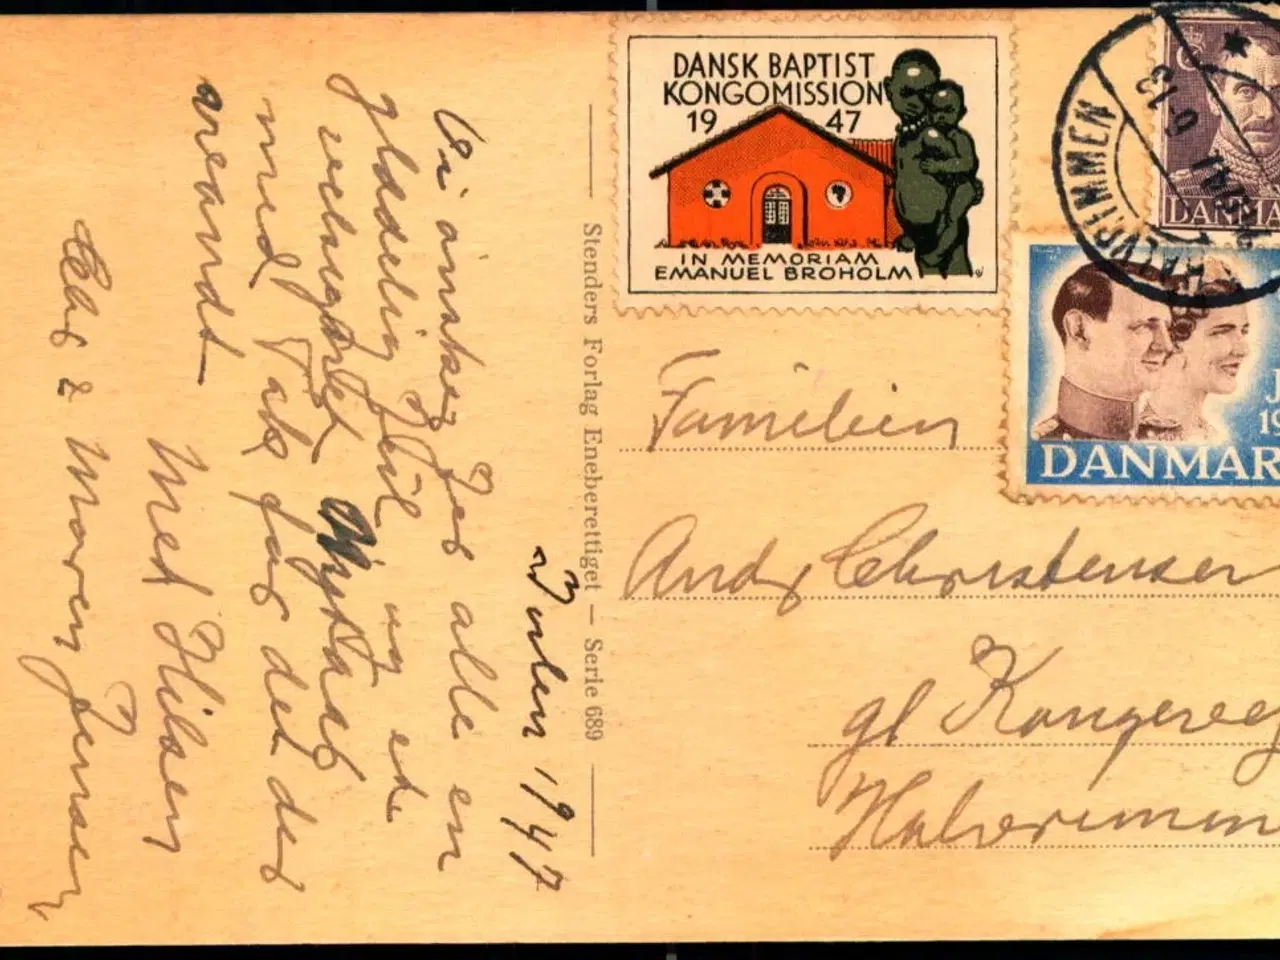 Julen 1947
Vi ønsker Jer alle en
glædelig Jul og et
velsignet Nytaar
med Tak for det der
svandt
Med Hilsen
Chr & Maren Jensen
Stenders Forlag Eneberettiget – Serie 689
DANSK BAPTIST
KONGOMISSION
19 47
IN MEMORIAM
EMANUEL BROHOLM
DANMA
HALVRIMMEN
13
DANMAR
Familien
Andr Christensen
gl Kongevej
Halvrimm